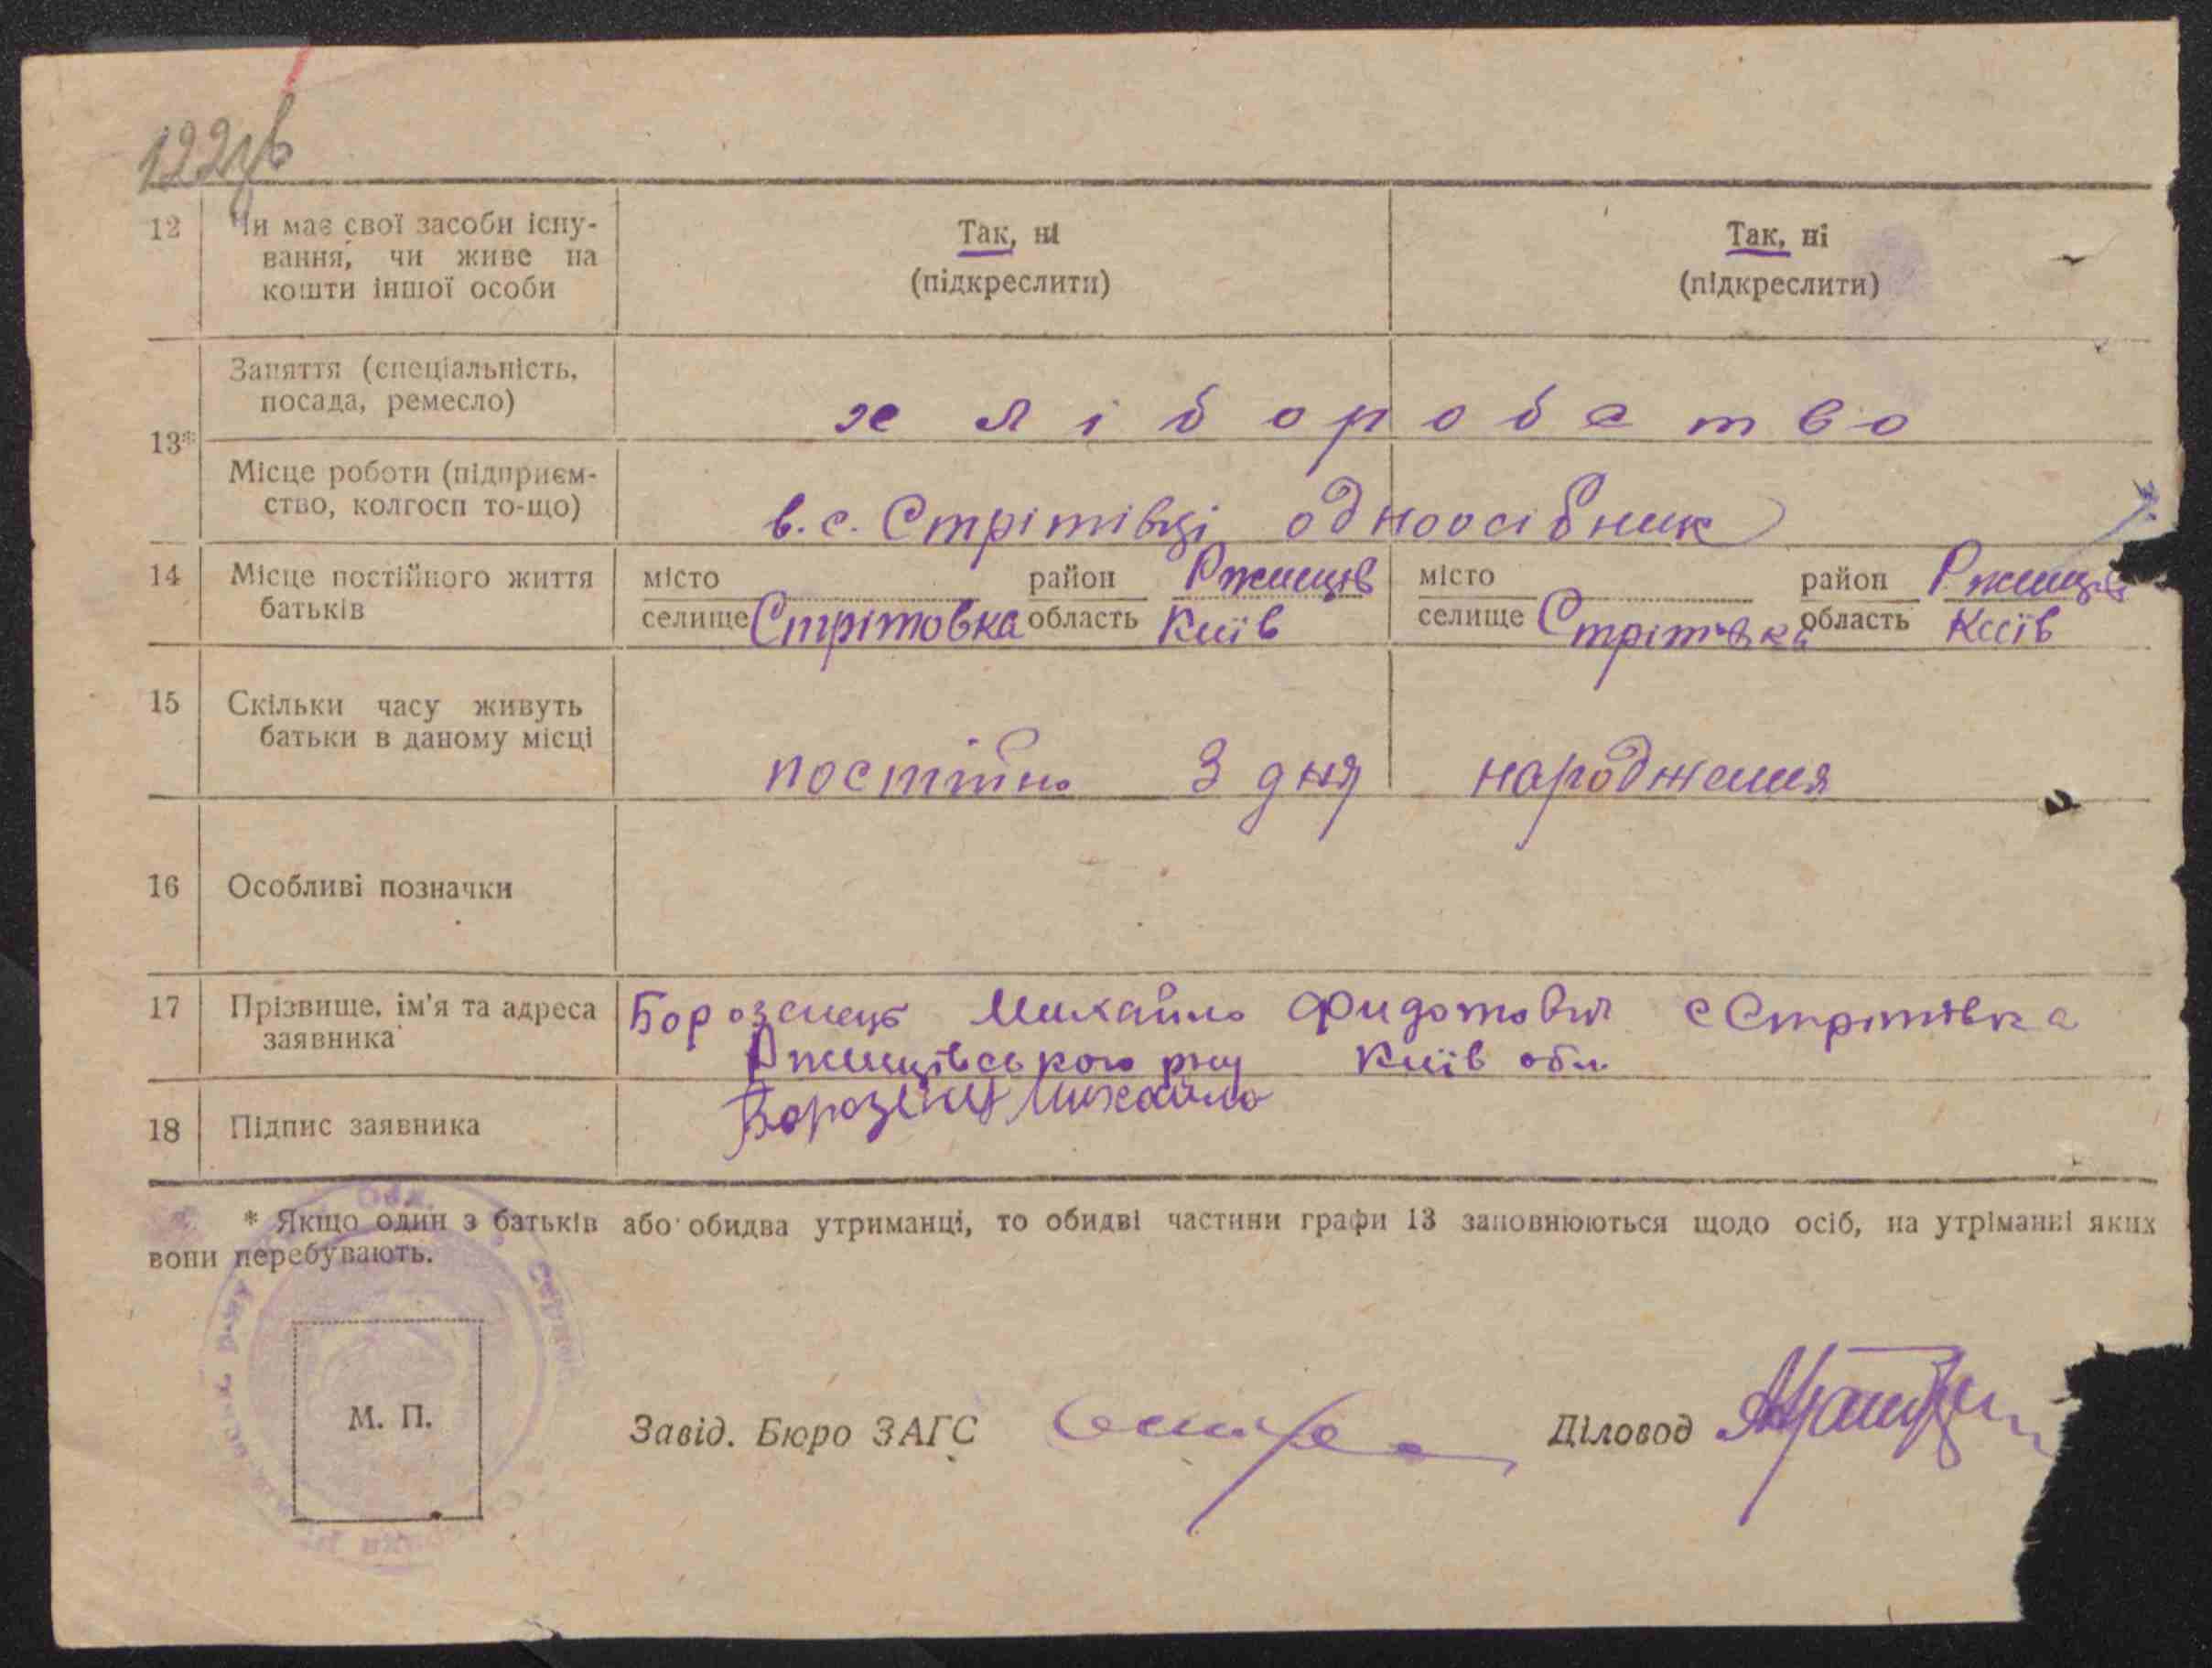 12 Чи має свої засоби існу-
вання, чи живе на
кошти іншої особи
Так, ні
(підкреслити)
Так, ні
(підкреслити)
13*
Заняття (спеціальність,
посада, ремесло)
хліборобство
Місце роботи (підприєм-
ство, колгосп то-що)
в. с. Стрітівці одноосібник
14 Місце постійного життя
батьків
місто район Ржищів
селище Стрітовка область Київ
місто район Ржищів
селище Стрітовка область Київ
15 Скільки часу живуть
батьки в даному місці
постійно З дня народження
16 Особливі позначки
17 Прізвище, ім'я та адреса
заявника
Борозенець Михайло Фидотович с Стрітовка
Ржищівського р-ну Київ обл.
18 Підпис заявника
Борозенец Михайло
* Якщо один з батьків або обидва утриманці, то обидві частини графи 13 заповнюються щодо осіб, на утріманні яких
вони перебувають.
М. П.
Завід. Бюро ЗАГС
Діловод